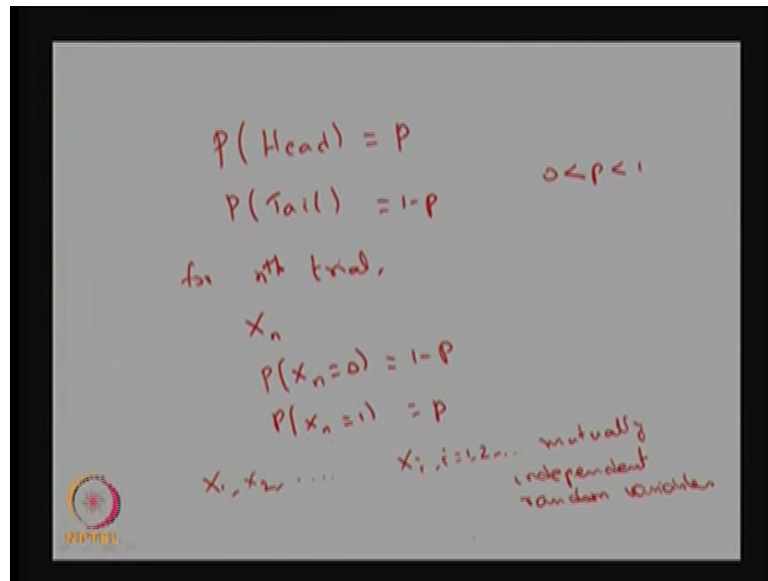 P(Head) = P
P(Tail) = 1-P
0<P<1
for nth trial,
Xn
P(Xn=0) = 1-P
P(Xn=1) = P
X1, X2, ....
Xi, i=1,2... mutually
independent
random variables
NPTEL